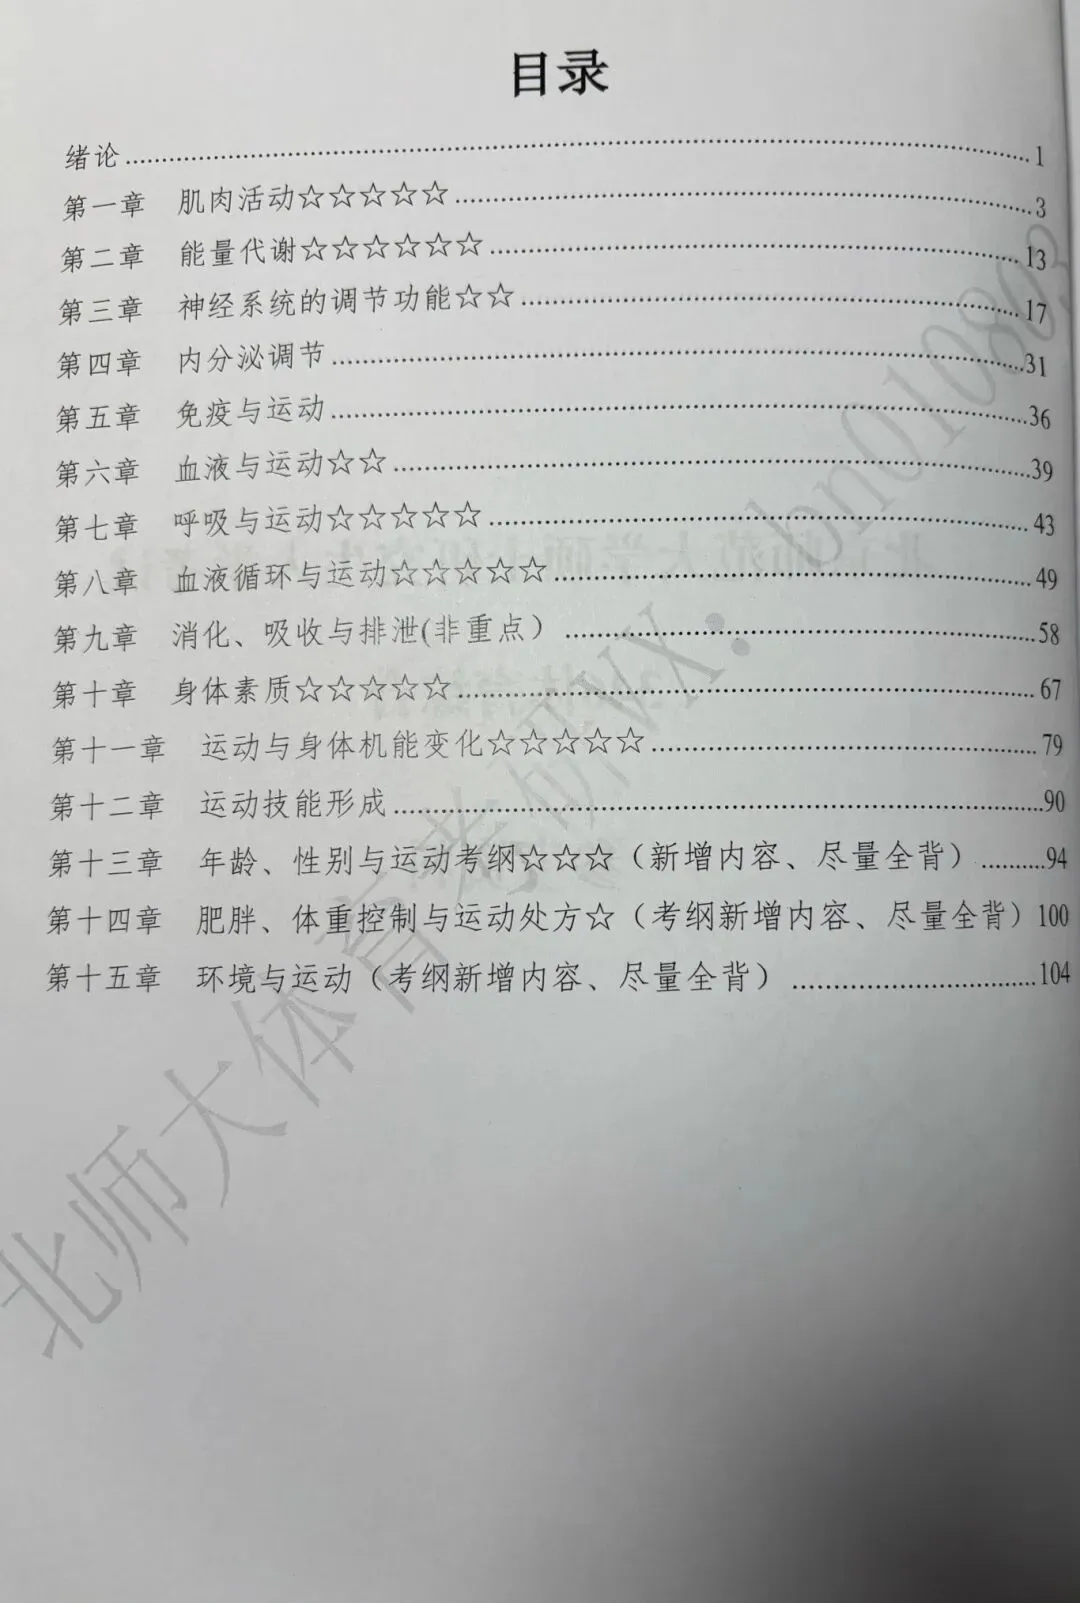 目录
绪论........................1
第一章 肌肉活动☆☆☆☆☆........................3
第二章 能量代谢☆☆☆☆☆☆........................13
第三章 神经系统的调节功能☆☆........................17
第四章 内分泌调节........................31
第五章 免疫与运动........................36
第六章 血液与运动☆☆........................39
第七章 呼吸与运动☆☆☆☆☆........................43
第八章 血液循环与运动☆☆☆☆☆........................49
第九章 消化、吸收与排泄(非重点）........................58
第十章 身体素质☆☆☆☆☆........................67
第十一章 运动与身体机能变化☆☆☆☆☆........................79
第十二章 运动技能形成........................90
第十三章 年龄、性别与运动考纲☆☆☆（新增内容、尽量全背）.........94
第十四章 肥胖、体重控制与运动处方☆（考纲新增内容、尽量全背）100
第十五章 环境与运动（考纲新增内容、尽量全背）........................104
北师大体育考研WX：bn010803